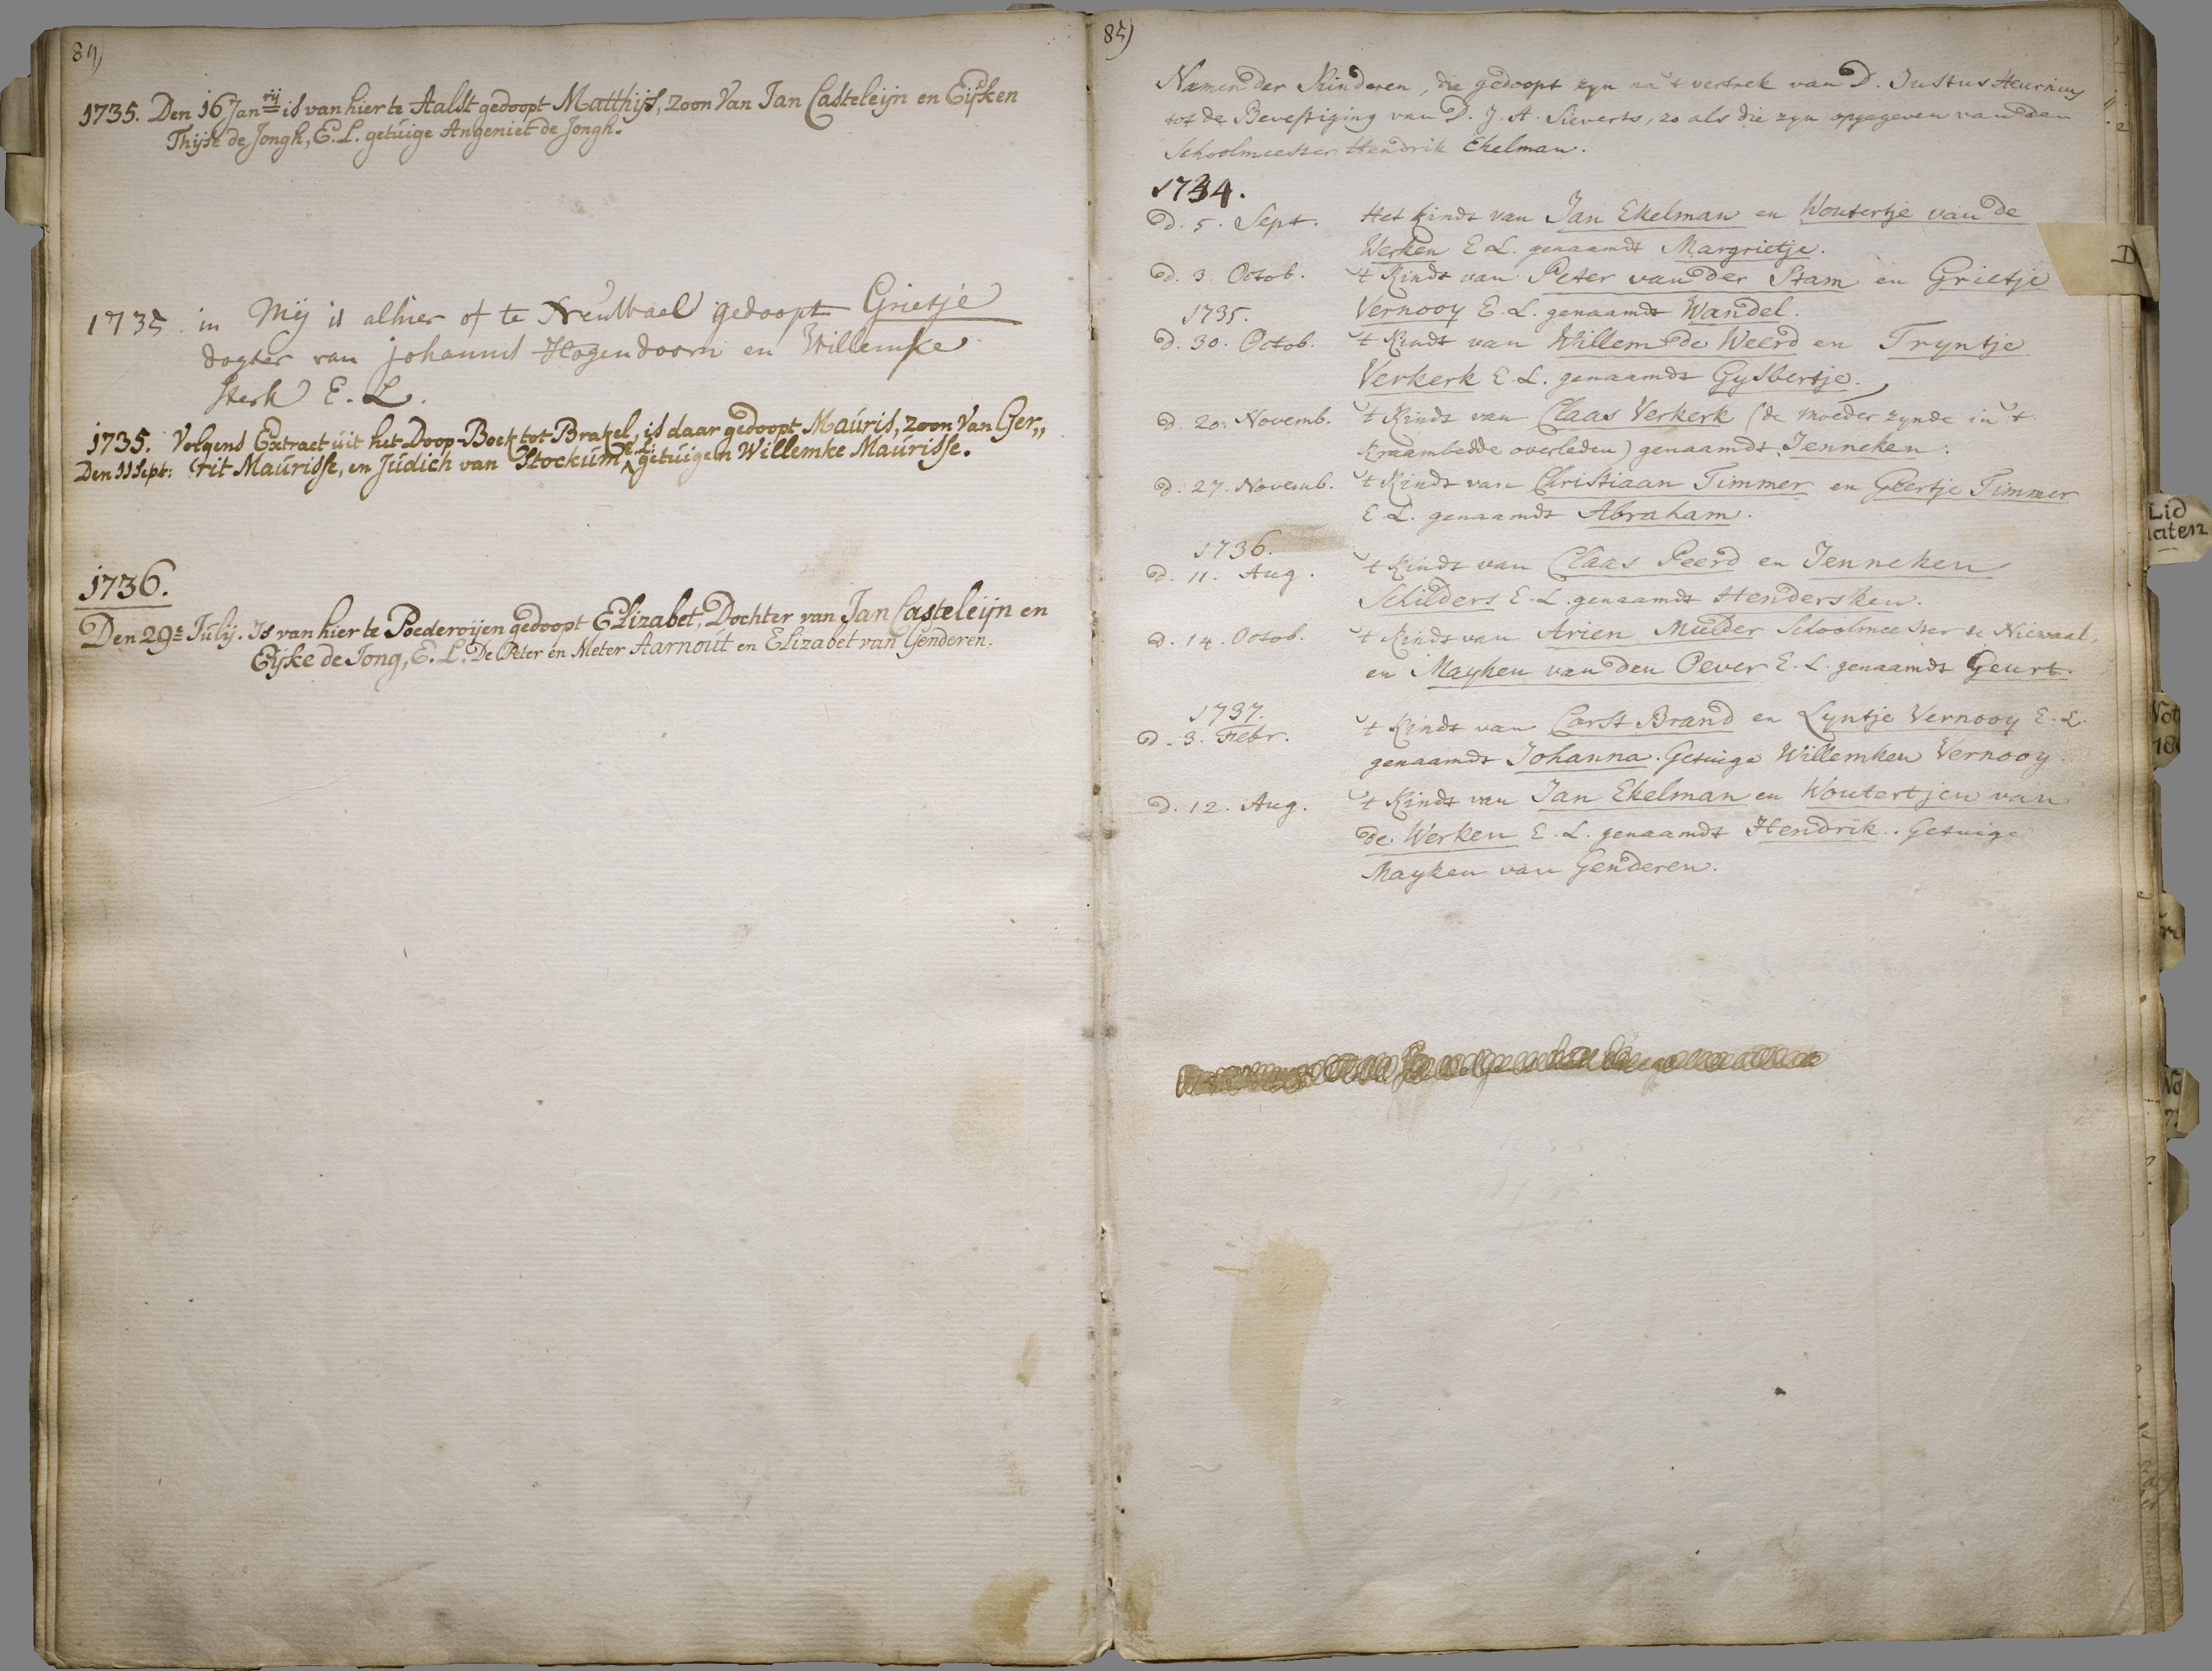 84)
1735. Den 16 Jan:rij is van hier te Aalst gedoopt Matthijs, zoon Van Jan Casteleijn en Eijken
Thijse de Jongh, E. L. getuige Angeniet de Jongh.
1735 in Mij is alhier of te Neuwael gedoopt Grietje
dogter van johannis Hogendoorn en Willemke
Sterk E. L.
1735. Volgens Extract uit het Doop-Boek tot Brakel, is daar gedoopt Mauris, zoon Van Ger„
Den 11 Sept: rit Maurisse, en Judich van Stockum E. L. getuigen Willemke Maurisse.
1736.
Den 29e July. Is van hier te Poederoijen gedoopt Elizabet, Dochter van Jan Casteleijn en
Eijke de Jong, E. L. De Peter en Meter Aarnout en Elizabet van Genderen.
85)
Namen der Kinderen, die gedoopt zyn na 't vertrek van D. Justus Heurnius
tot de Bevestiging van D. J. A. Sieverts, zo als die zyn opgegeven van den
Schoolmeester Hendrik Ekelman.
1734.
d. 5. Sept. Het kindt van Jan Ekelman en Woutertje van de
Werken E. L. genaamdt Margrietje.
d. 3. Octob. 't Kindt van Peter van der Stam en Grietje
Vernooy E. L. genaamdt Wandel.
1735.
d. 30. Octob. 't Kindt van Willem de Weerd en Tryntje
Verkerk E. L. genaamdt Gysbertje.
d. 20. Novemb. 't Kindt van Claas Verkerk (de moeder zynde in 't
Kraambedde overleden) genaamdt Jenneken.
d. 27. Novemb. 't Kindt van Christiaan Timmer en Geertje Timmer
E. L. genaamdt Abraham.
1736.
d. 11. Aug. 't Kindt van Claas Peerd en Jenneken
Schilders E. L. genaamdt Hendersken.
d. 14. Octob. 't Kindt van Arien Mulder Schoolmeester te Niewaal,
en Mayken van den Oever E. L. genaamdt Geurt.
1737.
d. 3. Febr. 't Kindt van Corst Brand en Lyntje Vernooy E. L.
genaamdt Johanna. Getuige Willemken Vernooy.
d. 12. Aug. 't Kindt van Jan Ekelman en Woutertjen van
de Werken E. L. genaamdt Hendrik. Getuige
Mayken van Genderen.
D
Lid
maten